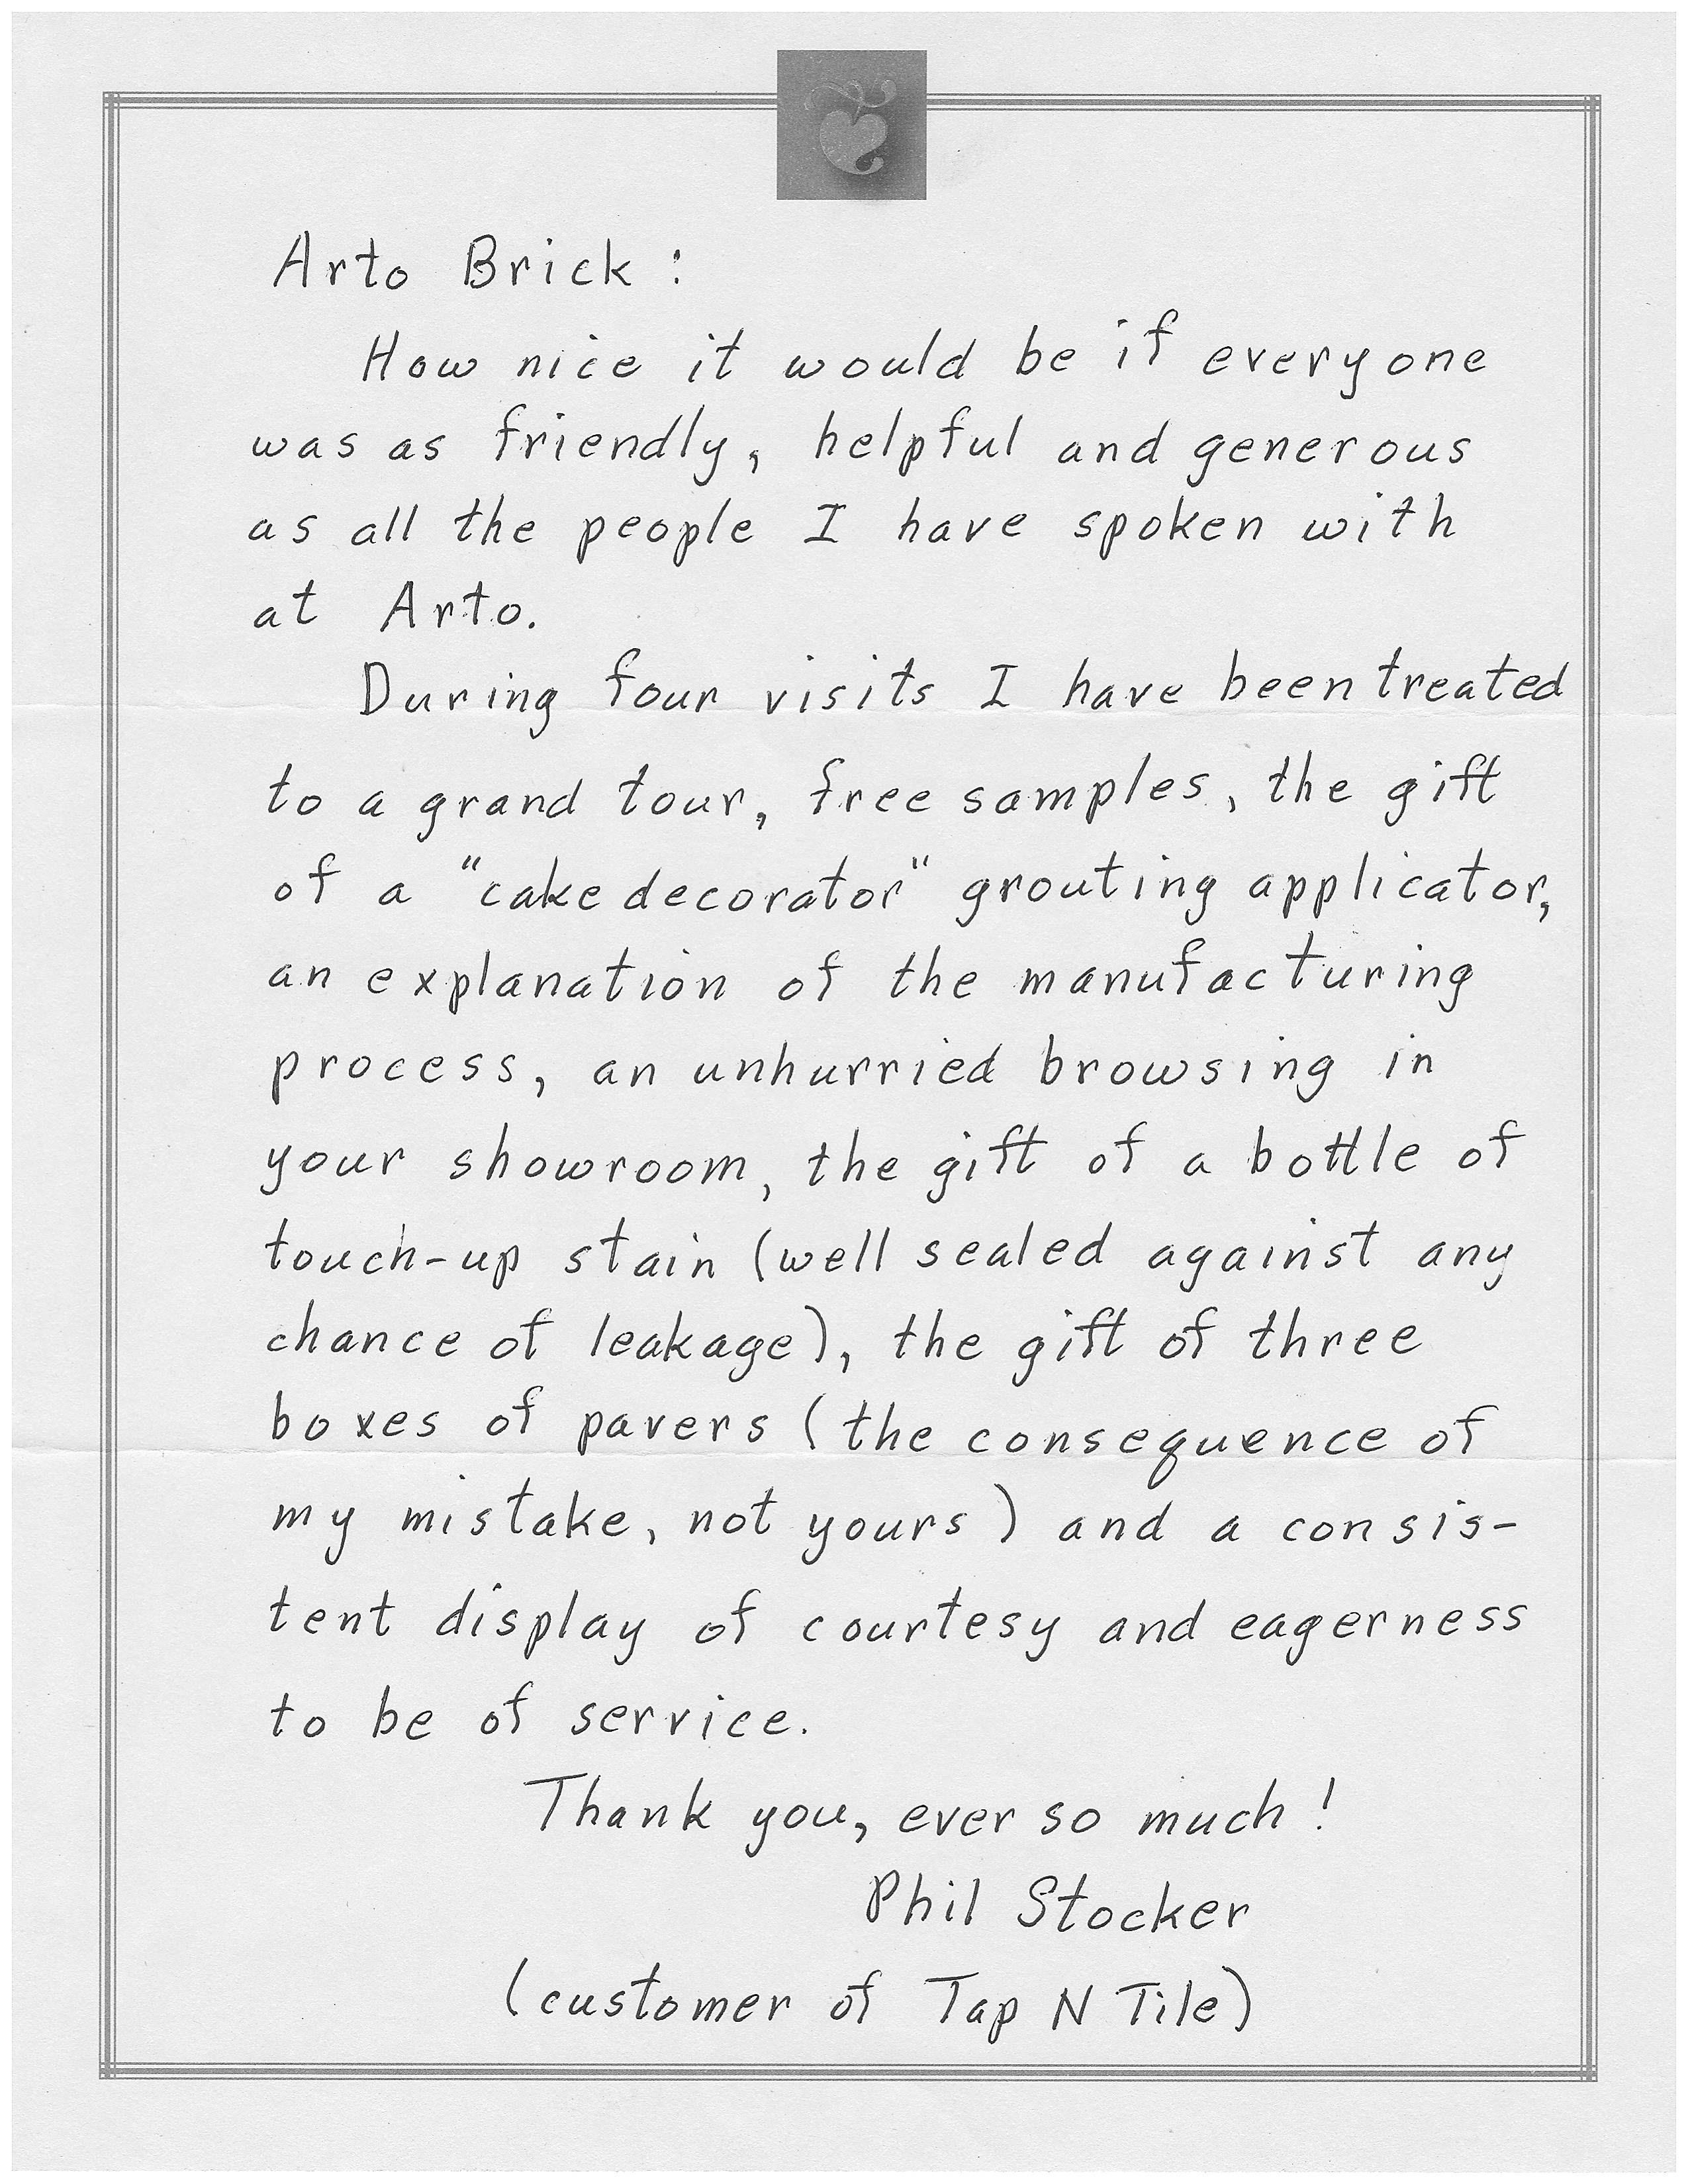 Arto Brick:
How nice it would be if everyone
was as friendly, helpful and generous
as all the people I have spoken with
at Arto.
During four visits I have been treated
to a grand tour, free samples, the gift
of a "cake decorator" grouting applicator,
an explanation of the manufacturing
process, an unhurried browsing in
your showroom, the gift of a bottle of
touch-up stain (well sealed against any
chance of leakage), the gift of three
boxes of pavers (the consequence of
my mistake, not yours) and a consis-
tent display of courtesy and eagerness
to be of service.
Thank you, ever so much!
Phil Stocker
(customer of Tap N Tile)